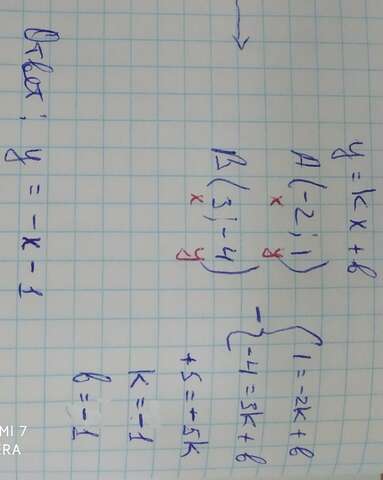 y = kx + b
A(-2; 1)
x y
B(3; -4)
x y
1 = -2k + b
-4 = 3k + b
+5 = -5k
k = -1
b = -1
Ответ: y = -x - 1
MI 7
ERA